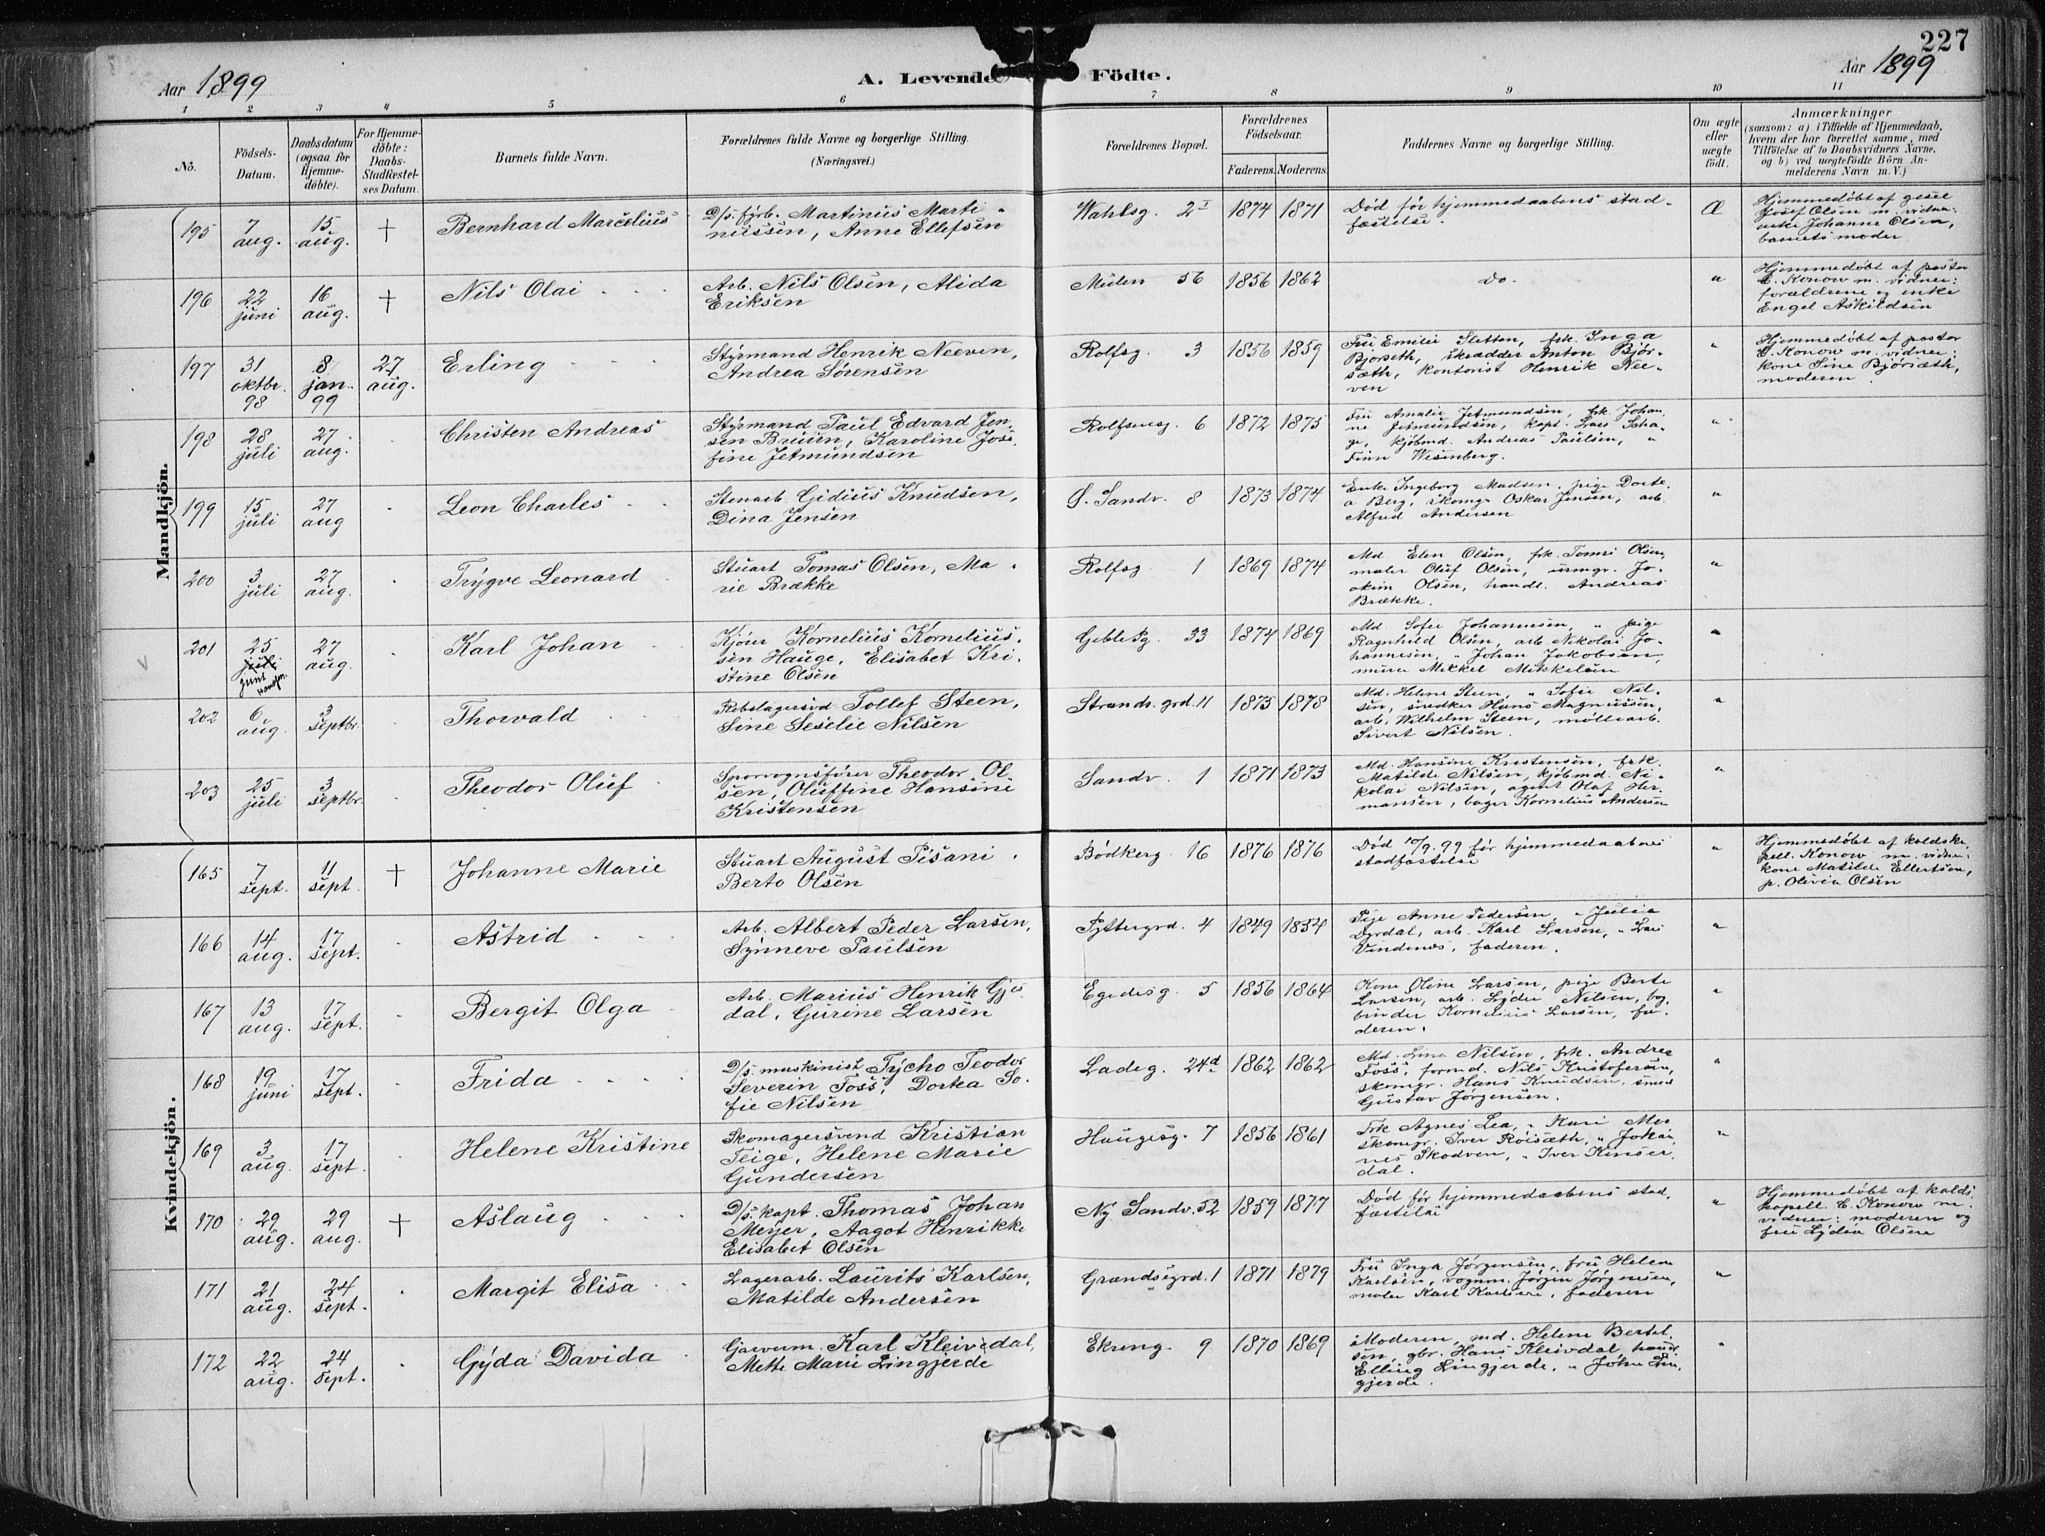 227
Aar 1899
A. Levende Födte.
Aar 1899
1 2 3 4 5 6 7 8 9 10 11
No.
Födsels-
Datum.
Daabsdatum
(ogsaa for
Hjemme-
döbte).
For Hjemme-
döbte:
Daabs-
Stadfæstel-
ses Datum.
Barnets fulde Navn.
Forældrenes fulde Navne og borgerlige Stilling.
(Næringsvei.)
Forældrenes Bopæl.
Forældrenes
Födselsaar.
Faderens. Moderens.
Faddernes Navne og borgerlige Stilling.
Om ægte
eller
uægte
födt.
Anmærkninger
(saasom: a) i Tilfælde af Hjemmedaab,
hvem der har forrettet samme, med
Tilföielse af to Daabsvidners Navne,
og b) ved uægtefödte Börn An-
melderens Navn m. V.)
Mandkjön.
195 7 aug. 15 aug. + Bernhard Marcelius
D/s. fyrb. Martinus Marti-
nussen, Anne Ellefsen
Wahlsg. 2 I 1874 1871
Död før hjemmedaabens stad-
fæstelse
Æ
Hjemmedøbt af gesel
Josef Olsen m. vidne:
enke Johanne Olsen,
barnets moder.
196 22 juni 16 aug. + Nils Olai
Arb. Nils Olsen, Alida
Eriksen
Mulen 56 1856 1862
do.
"
Hjemmedøbt af pastor
C. Konow m. vidner:
forældrene og enke
Engel Askildsen
197 31 oktbr. 98 8 jan. 99 27 aug. Erling
Styrmand Henrik Neeven,
Andrea Sørensen
Rolfsg. 3 1856 1859
Fru Emilie Sletten, frk. Inga
Bjørseth, skrædder Anton Bjør-
sæth, kontorist Henrik Nee-
ven
"
Hjemmedøbt af pastor
C. Konow m. vidner:
kone Sine Bjørsæth,
moderen
198 28 juli 27 aug. Christen Andreas
Styrmand Paul Edvard Jen-
sen Bruun, Karoline Jose-
fine Jetmundsen
Rolfsensg. 6 1872 1875
Fru Amalie Jetmundsen, frk. Johan
ne Jetmundsen, kapt. Lars
kjøbmd. Andreas Paulsen, "
Finn Wesenberg.
"
199 15 juli 27 aug Leon Charles
Stenarb. Gidius Knudsen,
Dina Jensen
Ø. Sandv. 8 1873 1874
Enke Ingeborg Madsen, pige Dorte
a Berg, skomgr Oskar Jensen, arb.
Alfred Andersen
"
200 3 juli 27 aug. Trygve Leonard
Stuart Tomas Olsen, Ma-
rie Brække
Rolfsg. 1 1869 1874
Md. Elen Olsen, frk. Tomri Olsen,
maler Oluf Olsen, urmgr. Jo-
akim Olsen, handl. Andreas
Brække.
"
201 25 juli juni 27 aug. Karl Johan
Kjører Kornelius Kornelius-
sen Hauge, Elisabet Kri-
stine Olsen
Geble Pg. 33 1874 1869
Md. Sofie Johannesen, " pige
Ragnhild Olsen, arb. Nikolai Jo-
hannesen, " Johan Jakobsen,
murer Mikkel Mikkelsen
"
202 6 aug. 3 septbr. Thorvald
Rebslagersvd Tollef Steen,
Sine Seselie Nilsen
Strands. grd. 11 1875 1878
Md. Helene Steen, " Sofie Nil-
sen, snedker Hans Magnussen,
arb. Wilhelm Steen, møllearb.
Sivert Nilsen.
"
203 25 juli 3 septbr. Theodor Oluf
Sporvognsfører Theodor Ol-
sen, Oluffine Hansine
Kristensen
Sandv. 1 1871 1873
Md. Hansine Kristensen, frk.
Matilde Nilsen, kjøbmd. Ni-
kolai Nilsen, agent Olaf Her-
mansen, bager Kornelius Andersen
"
Kvindekjön.
165 7 sept. 11 sept. + Johanne Marie
Stuart August Pisani
Berto Olsen
Bødkerg. 16 1876 1876
Død 10/9. 99 før hjemmedaabens
stadfæstelse
"
Hjemmedøbt af kaldska-
pell. Konow m. vidner:
kone Matilde Ellertsen,
p. Olivia Olsen
166 14 aug. 17 sept. Astrid
Arb. Albert Peder Larsen,
Synneve Paulsen
Pyttergrd. 4 1849 1854
Pige Anne Pedersen, " Julia
Dyrdal, arb. Karl Larsen, " Lars
Vindenes, faderen.
"
167 13 aug. 17 sept. Bergit Olga
Arb. Marius Henrik Gje
dal, Gurine Larsen
Egedesg. 5 1856 1864
Kone Oline Larsen, pige Berte
Larsen, arb. Lyder Nilsen, bog-
binder Kornelius Larsen, fa-
deren.
"
168 19 juni 17 sept. Frida
D/s. maskinist Tycho Teodor
Severin Foss, Dorka So-
fie Nilsen
Ladeg. 24d 1862 1862
Md. Lina Nilsen, frk. Andrea
Foss, formd. Nils Kristofersen,
skomgr. Hans Knudsen, smed
Gustav Jørgensen.
"
169 3 aug. 17 sept. Helene Kristine
Skomagersvend Kristian
Teige, Helene Marie
Gundersen
Haugesg. 7 1856 1861
Frk Agnes Lea, " Kari Moe
skomgr. Iver Røisæth, " Johan
nes Skodven, " Iver Kinser
dal.
"
170 29 aug. 29 aug. + Aslaug
D/s. kapt. Thomas Johan
Meyer, Aagot Henrikke
Elisabet Olsen
Ny Sandv. 52 1859 1877
Død før hjemmedaabens stad
fæstelse
"
Hjemmedøbt af kalds
kapell. C. Konow m.
vidner: moderen og
fru Lydia Olsen
171 21 aug. 24 sept. Margit Elisa
Lagerarb. Laurits Karlsen,
Matilde Andersen
Grændsegrd. 1 1871 1879
Fru Inga Jørgensen, fru Helene
Karlsen, vognm. Jørgen Jørgensen,
maler Karl Karlsen, faderen
"
172 22 aug. 24 sept. Gyda Davida
Garverm. Karl Kleivdal,
Mette Marie Lingjerde
Ekreng. 9 1870 1869
Moderen, md. Helene Bertel-
sen, gbr. Hans Kleivdal, handl.
Elling Lingjerde, " John Lin-
gjerde.
"